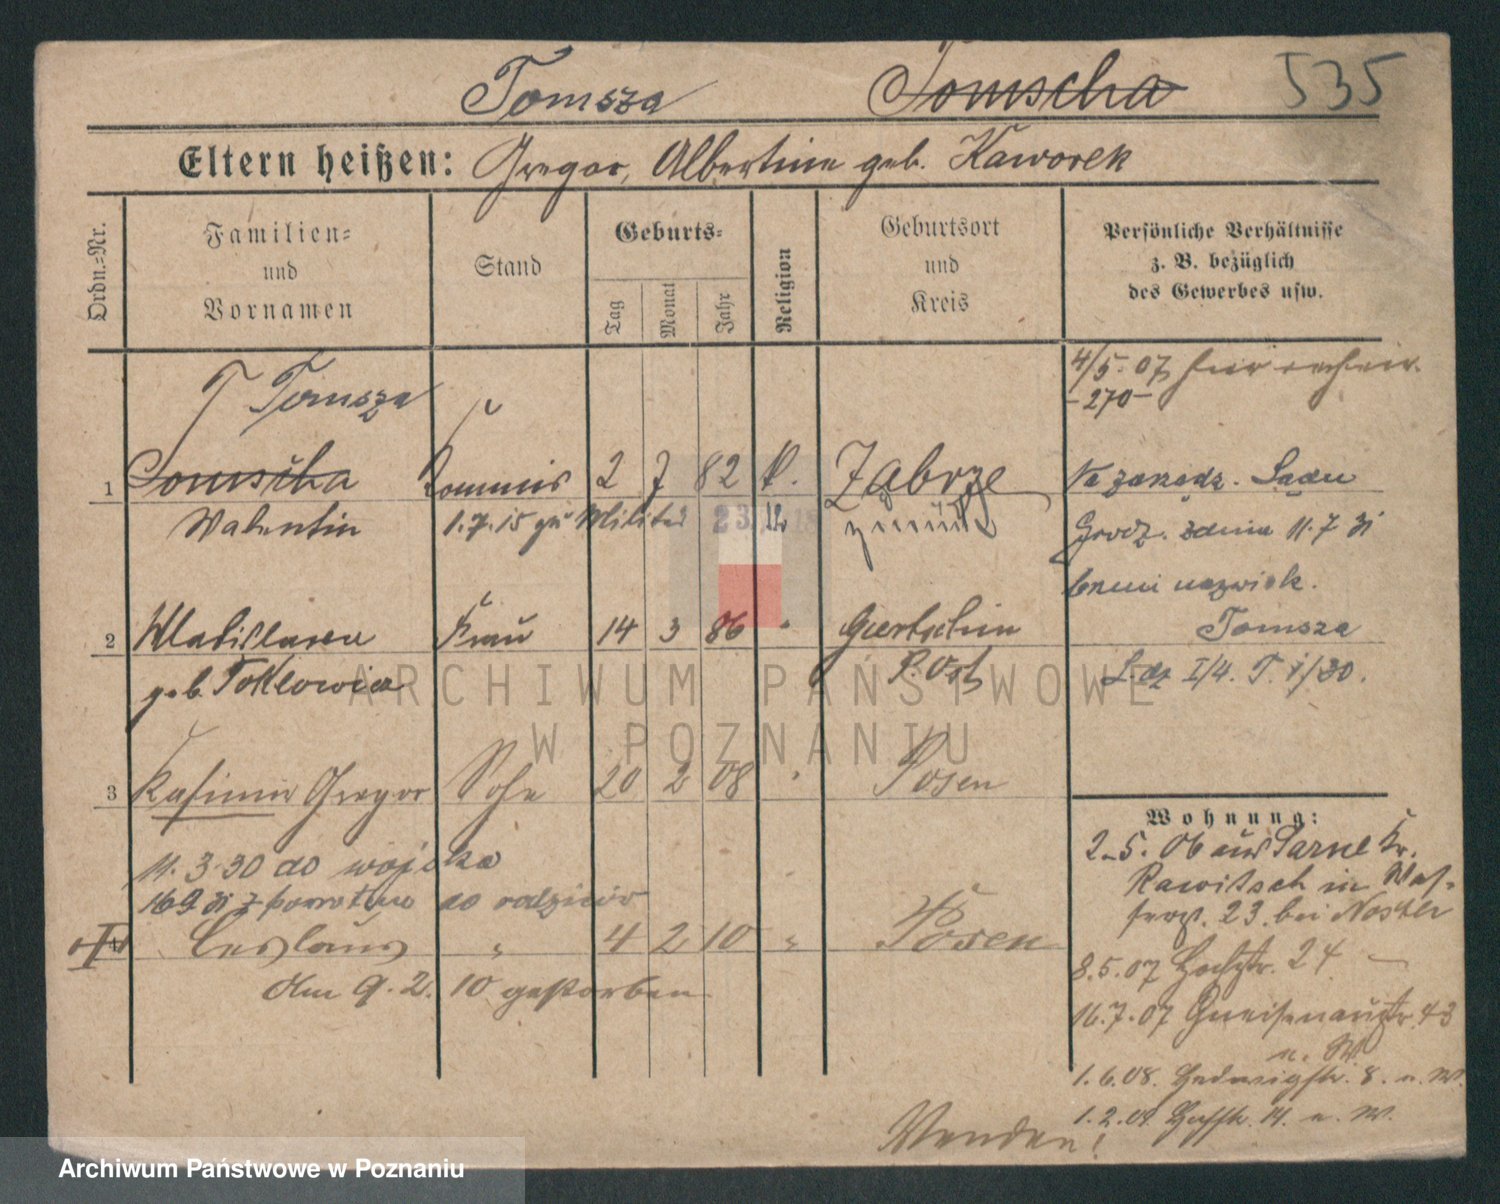 Tomsza Tomscha 535
Eltern heißen: Gregor, Albertine geb. Kaworek
Ordn.-Nr.
Familien-
und
Vornamen
Stand
Geburts-
Tag
Monat
Jahr
Religion
Geburtsort
und
Kreis
Persönliche Verhältnisse
z. B. bezüglich
des Gewerbes usw.
4/5. 07
-270-
T Tomsza
1 Tomscha Kommis 2 7 82 k. Zabrze
Valentin 1.7.15 zu Militär 23. 12 18 zurück
Na zarządz. Sądu
Grodz. z dnia 11.7
brmi nazwisk.
Tomsza
L.dz I/4. T. 1/30.
2 Wladislawa Frau 14 3 86 " Goertschin
geb. P. Ost
3 Kasimir Gregor Sohn 20 2 08 " Posen
11. 3. 30 do wojska
16 9 31 z powrotem do rodziców
4 Ceslaus " 4 2 10 " Posen
Am 9. 2. 10 gestorben
Wohnung:
2.5. 06 aus Sarne Kr.
Rawitsch in
23. bei
8.5.07 24
16.7.07 Gneisenaustr. 43
n. W.
1.6.08. Hedwigstr. 8. n. W.
1.2.09. 14. n. W.
Wenden!
ARCHIWUM PAŃSTWOWE
W POZNANIU
Archiwum Państwowe w Poznaniu